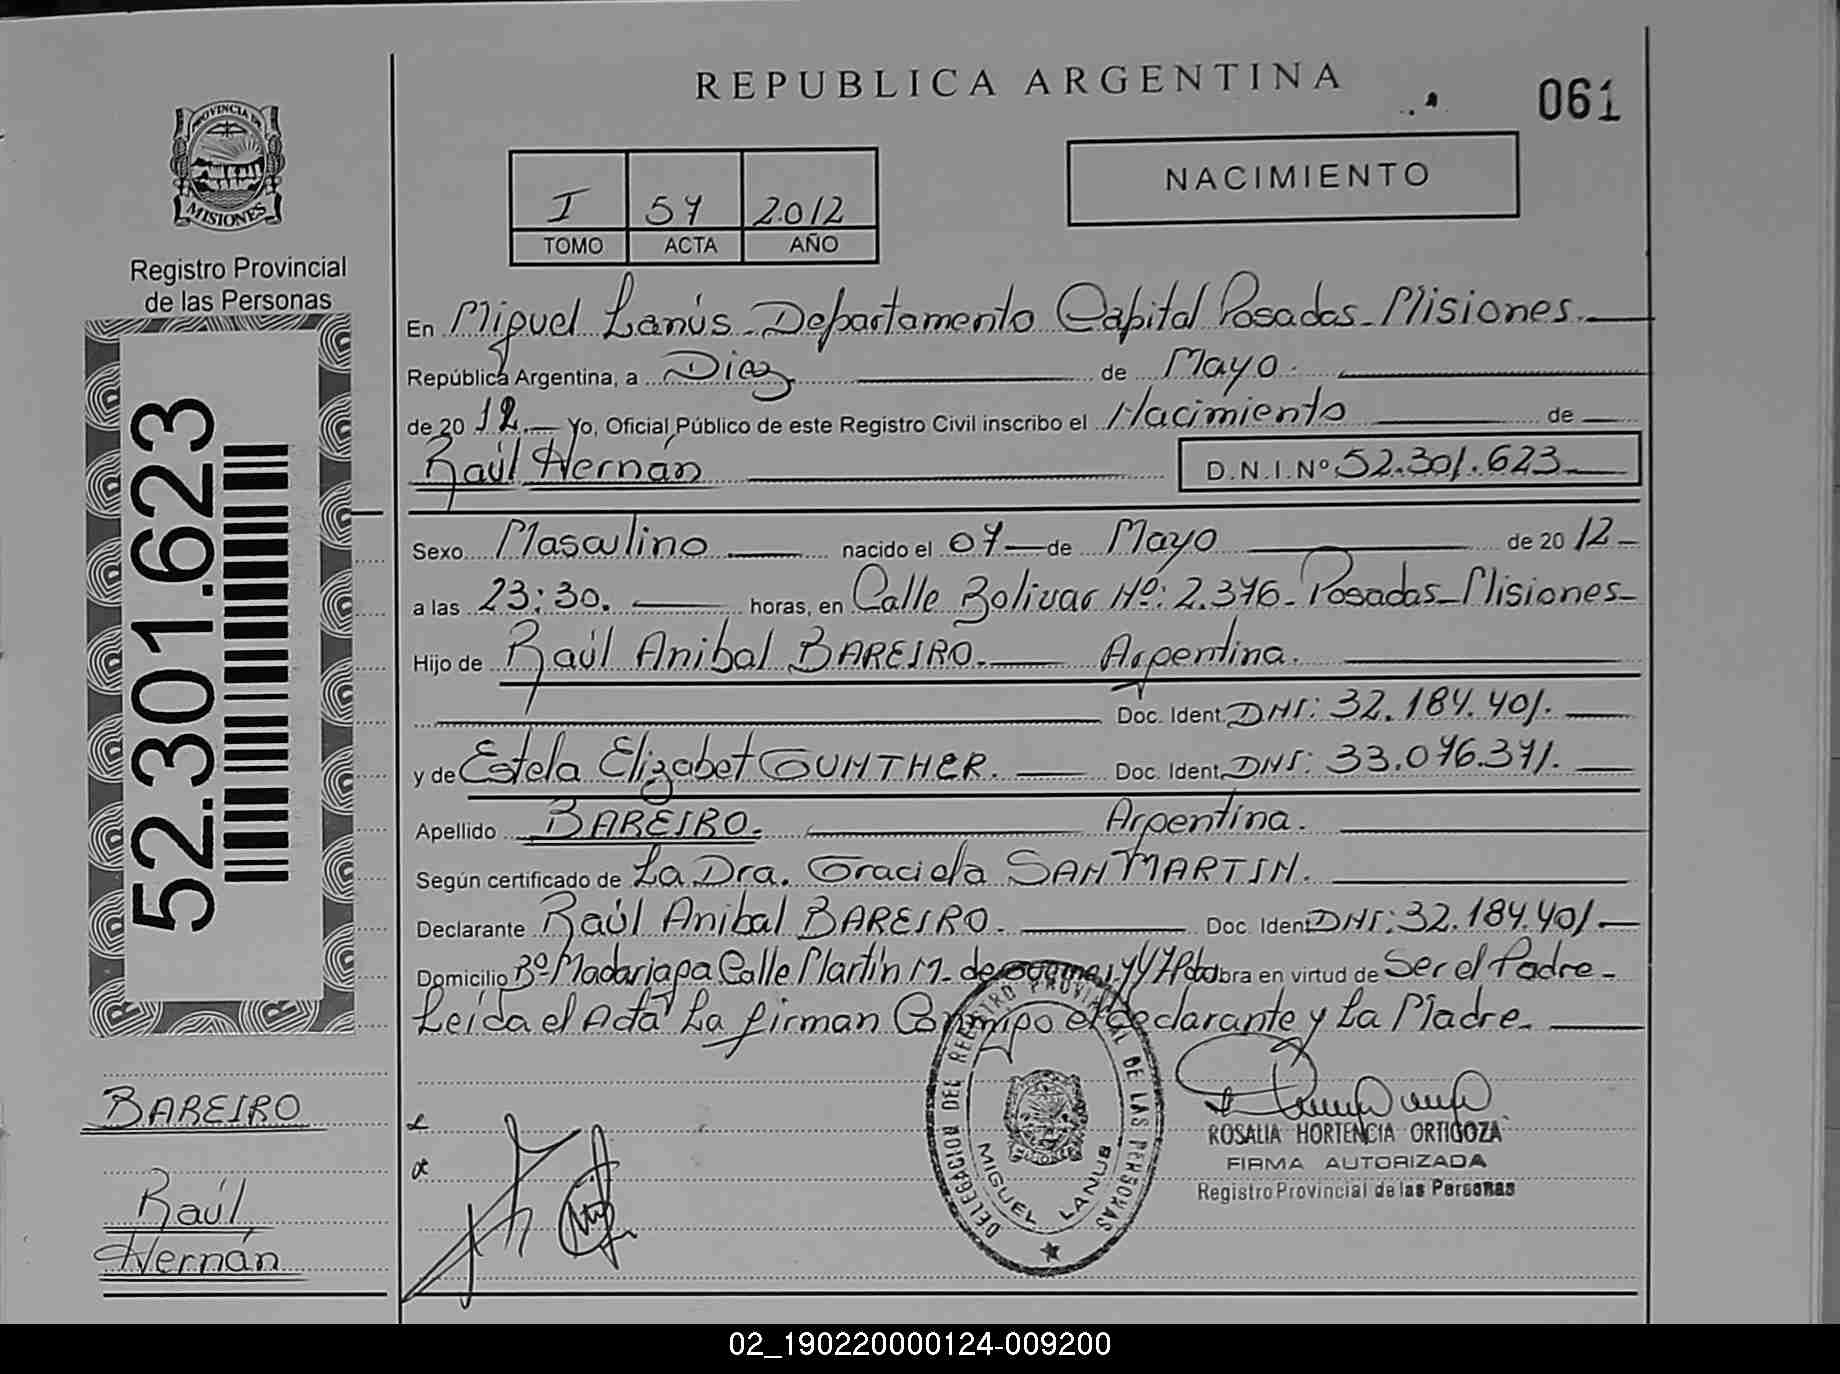 REPUBLICA ARGENTINA
061
PROVINCIA DE
MISIONES
Registro Provincial
de las Personas
I 57 2.012
TOMO ACTA AÑO
NACIMIENTO
52.301.623
En Miguel Lanús - Departamento Capital Posadas - Misiones.
República Argentina, a Diez de Mayo.
de 20 12. Yo, Oficial Público de este Registro Civil inscribo el Nacimiento de
Raúl Hernán D.N.I.Nº 52.301.623
Sexo Masculino nacido el 07 de Mayo de 20 12
a las 23:30. horas, en Calle Bolivar Nº: 2.376 - Posadas - Misiones
Hijo de Raúl Anibal BAREIRO. Argentina.
Doc. Ident. DNI: 32.184.401.
y de Estela Elizabet GUNTHER. Doc. Ident. DNI: 33.076.371.
Apellido BAREIRO. Argentina.
Según certificado de La Dra. Graciela SAN MARTIN.
Declarante Raúl Anibal BAREIRO. Doc. Ident DNI: 32.184.401
Domicilio Bº Madariaga Calle Martín M. de y obra en virtud de Ser el Padre -
Leída el Acta La firman Conmigo el declarante y La Madre.
BAREIRO
Raúl
Hernán
DELEGACION DEL REGISTRO PROVINCIAL DE LAS PERSONAS
MIGUEL LANUS
ROSALIA HORTENCIA ORTIGOZA
FIRMA AUTORIZADA
Registro Provincial de las Personas
02_190220000124-009200